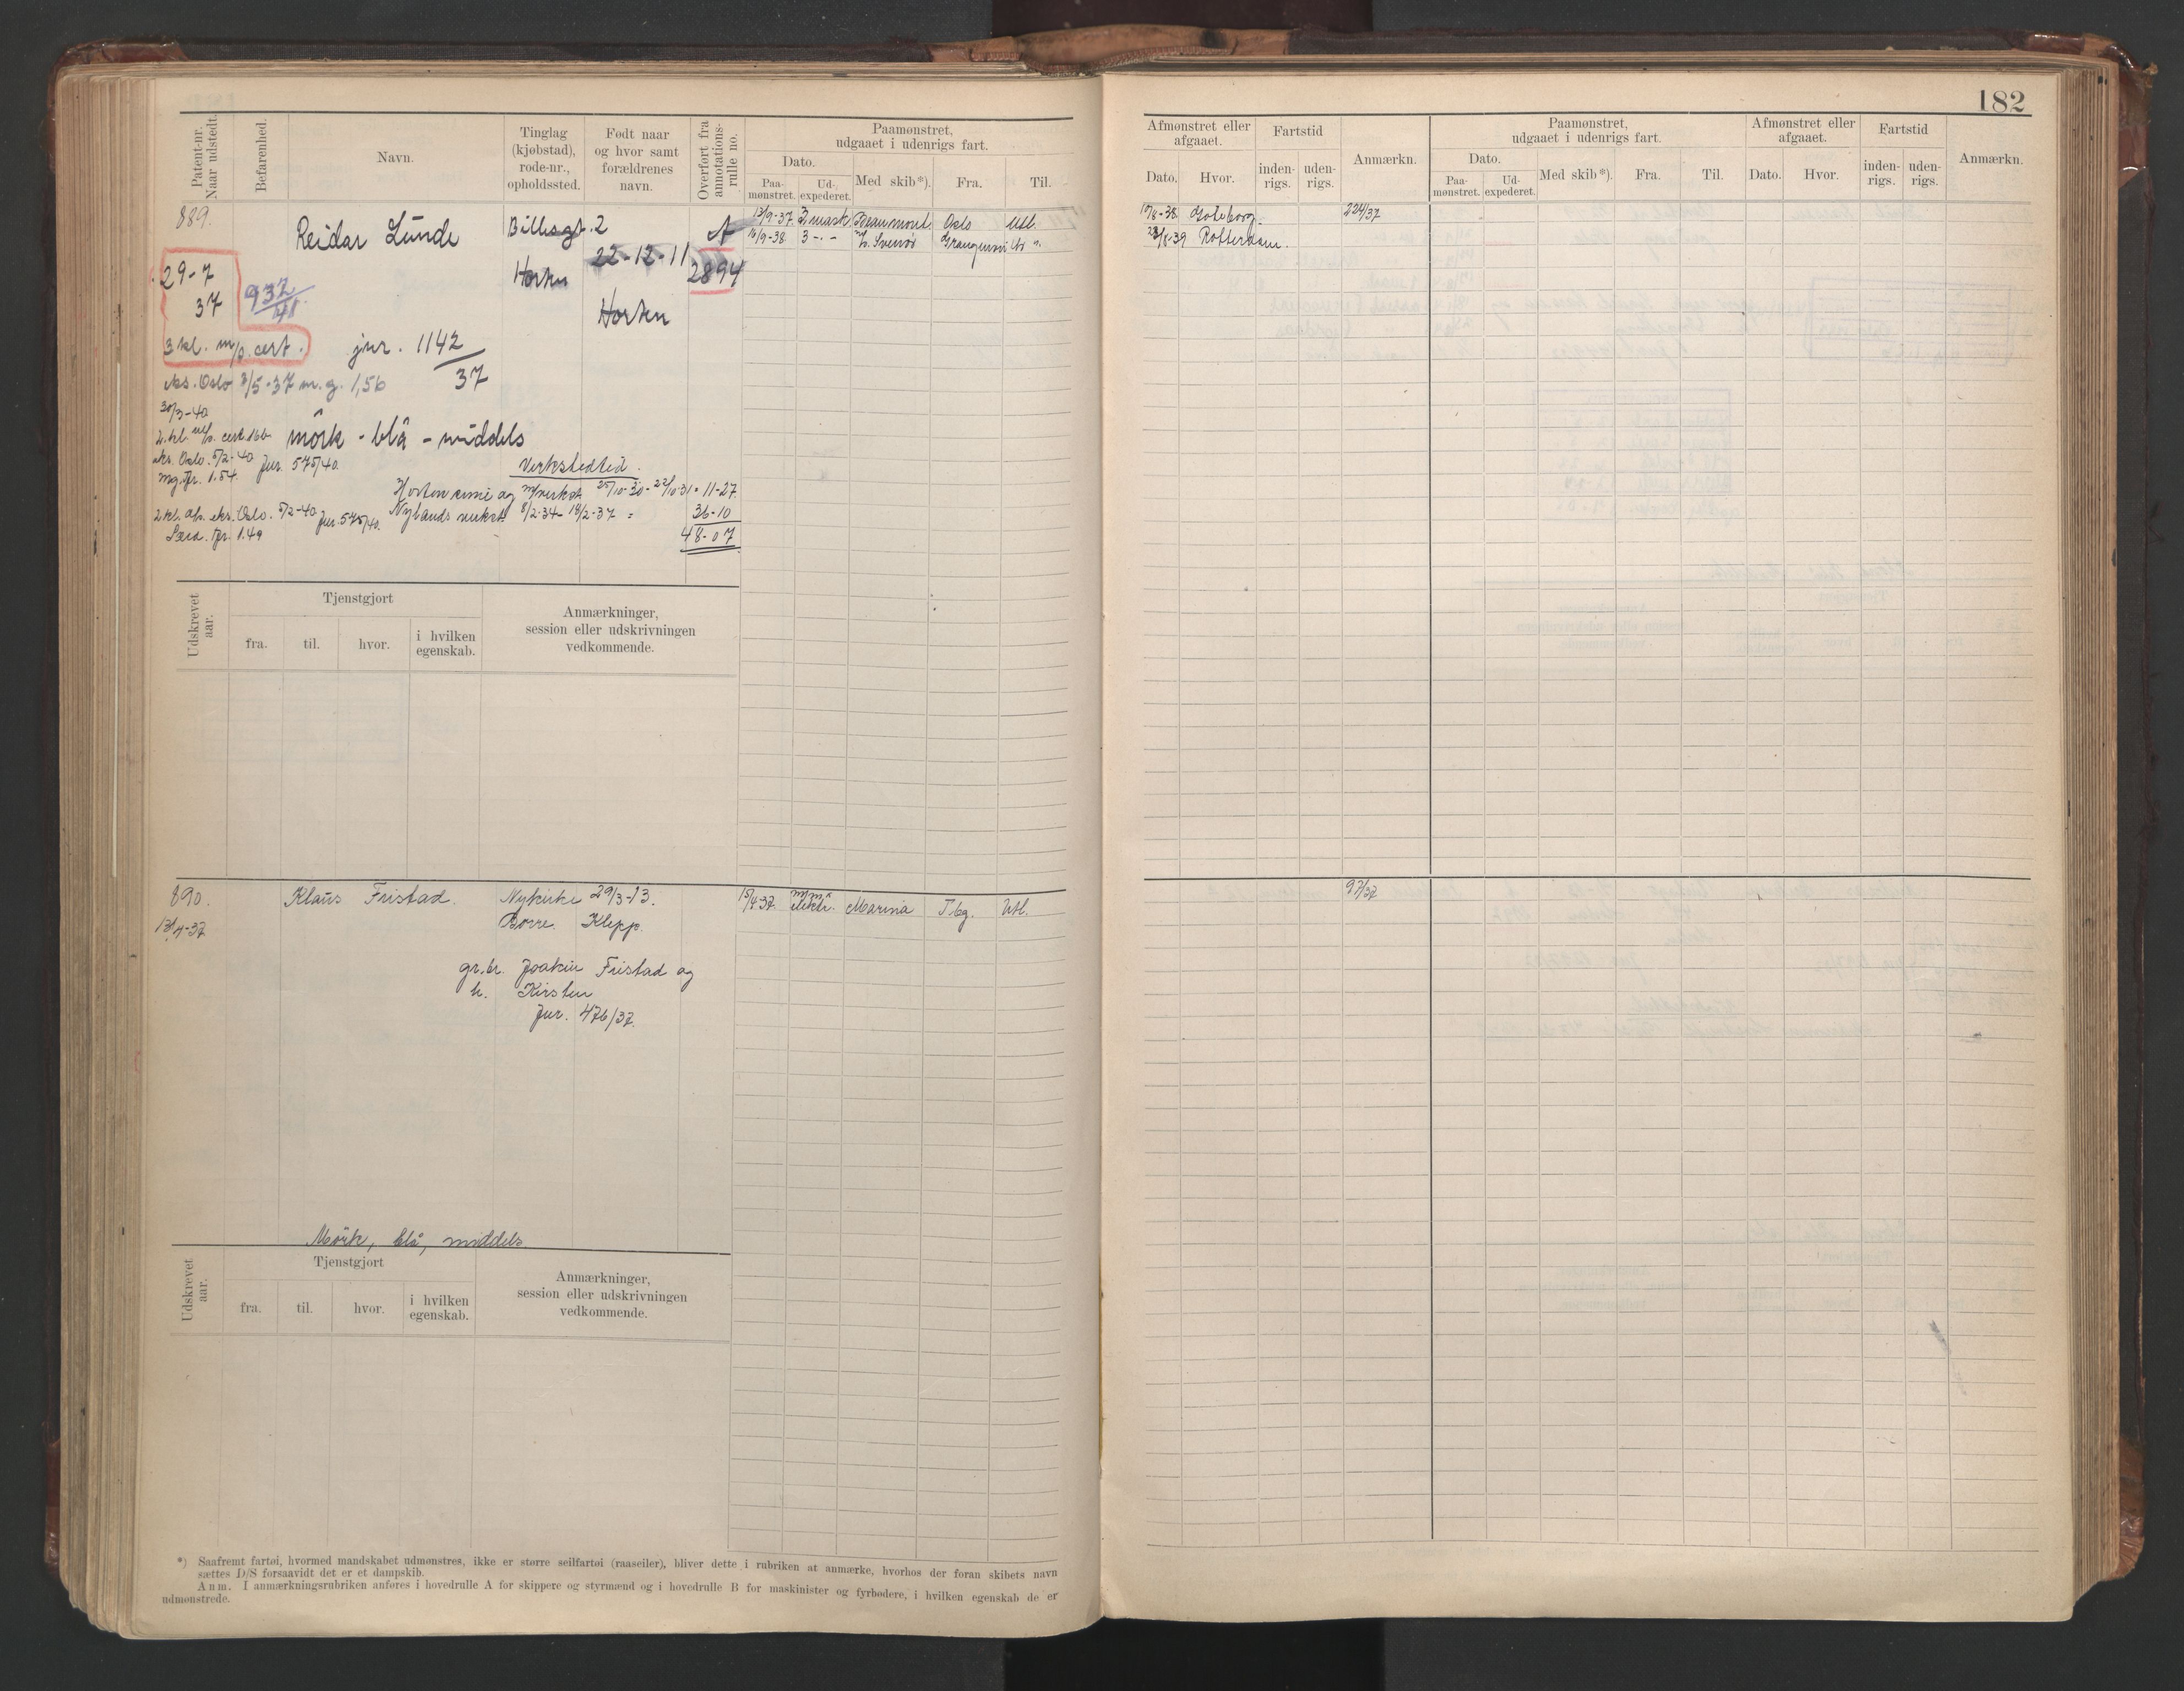 182
Patent-nr. Naar udstedt.
Befarenhed.
Navn.
Tinglag (kjøbstad), rode-nr., opholdssted.
Født naar og hvor samt forældrenes navn.
Overført fra annotations-rulle no.
Paamønstret, udgaaet i udenrigs fart.
Dato.
Paa-mønstret.
Ud-expederet.
Med skib*).
Fra.
Til.
Afmønstret eller afgaaet.
Dato.
Hvor.
Fartstid
inden-rigs.
uden-rigs.
Anmærkn.
Paamønstret, udgaaet i udenrigs fart.
Dato.
Paa-mønstret.
Ud-expederet.
Med skib*).
Fra.
Til.
Afmønstret eller afgaaet.
Dato.
Hvor.
Fartstid
inden-rigs.
uden-rigs.
Anmærkn.
889.
Reidar Lunde
Billesgt. 2
Horten
22-12-11
Horten
A
2894
13/9-37. 3. mask Beaumont. Oslo Utl.
16/9-38 3 -"- m/s. Svenör
10/8-38 Goteborg. 224/37
23/8-39 Rotterdam.
29-7
37
937/41
3 kl. m/o. cert.
jnr. 1142/37
eks. Oslo 3/5-37 m.g. 1,56
30/3-40
mörk - blå - middels
eks. Oslo. 5/2-40 Jnr. 575/40.
Verkstedtid.
25/10-30 - 22/10-31 = 11-27
Nylands verkst. 8/2-34 - 18/2-37 = 36-10
48-07
2 kl. eks. Oslo. 5/2-40 Jnr. 575/40.
1.49
Udskrevet aar.
Tjenstgjort
fra.
til.
hvor.
i hvilken egenskab.
Anmærkninger, session eller udskrivningen vedkommende.
890.
13/4-37
Klaus Fristad.
Nykirke
Borre.
29/3-13.
Klepp.
15/4-37. elektr. Marina Tbg. Utl.
97/37
gr.br. Joakim Fristad og
h. Kirsten
Jnr. 476/37.
Mörk, blå, middels
Udskrevet aar.
Tjenstgjort
fra.
til.
hvor.
i hvilken egenskab.
Anmærkninger, session eller udskrivningen vedkommende.
*) Saafremt fartøi, hvormed mandskabet udmønstres, ikke er større seilfartøi (raaseiler), bliver dette i rubriken at anmærke, hvorhos der foran skibets navn
sættes D/S forsaavidt det er et dampskib.
Anm. I anmærkningsrubriken anføres i hovedrulle A for skippere og styrmænd og i hovedrulle B for maskinister og fyrbødere, i hvilken egenskab de er
udmønstrede.